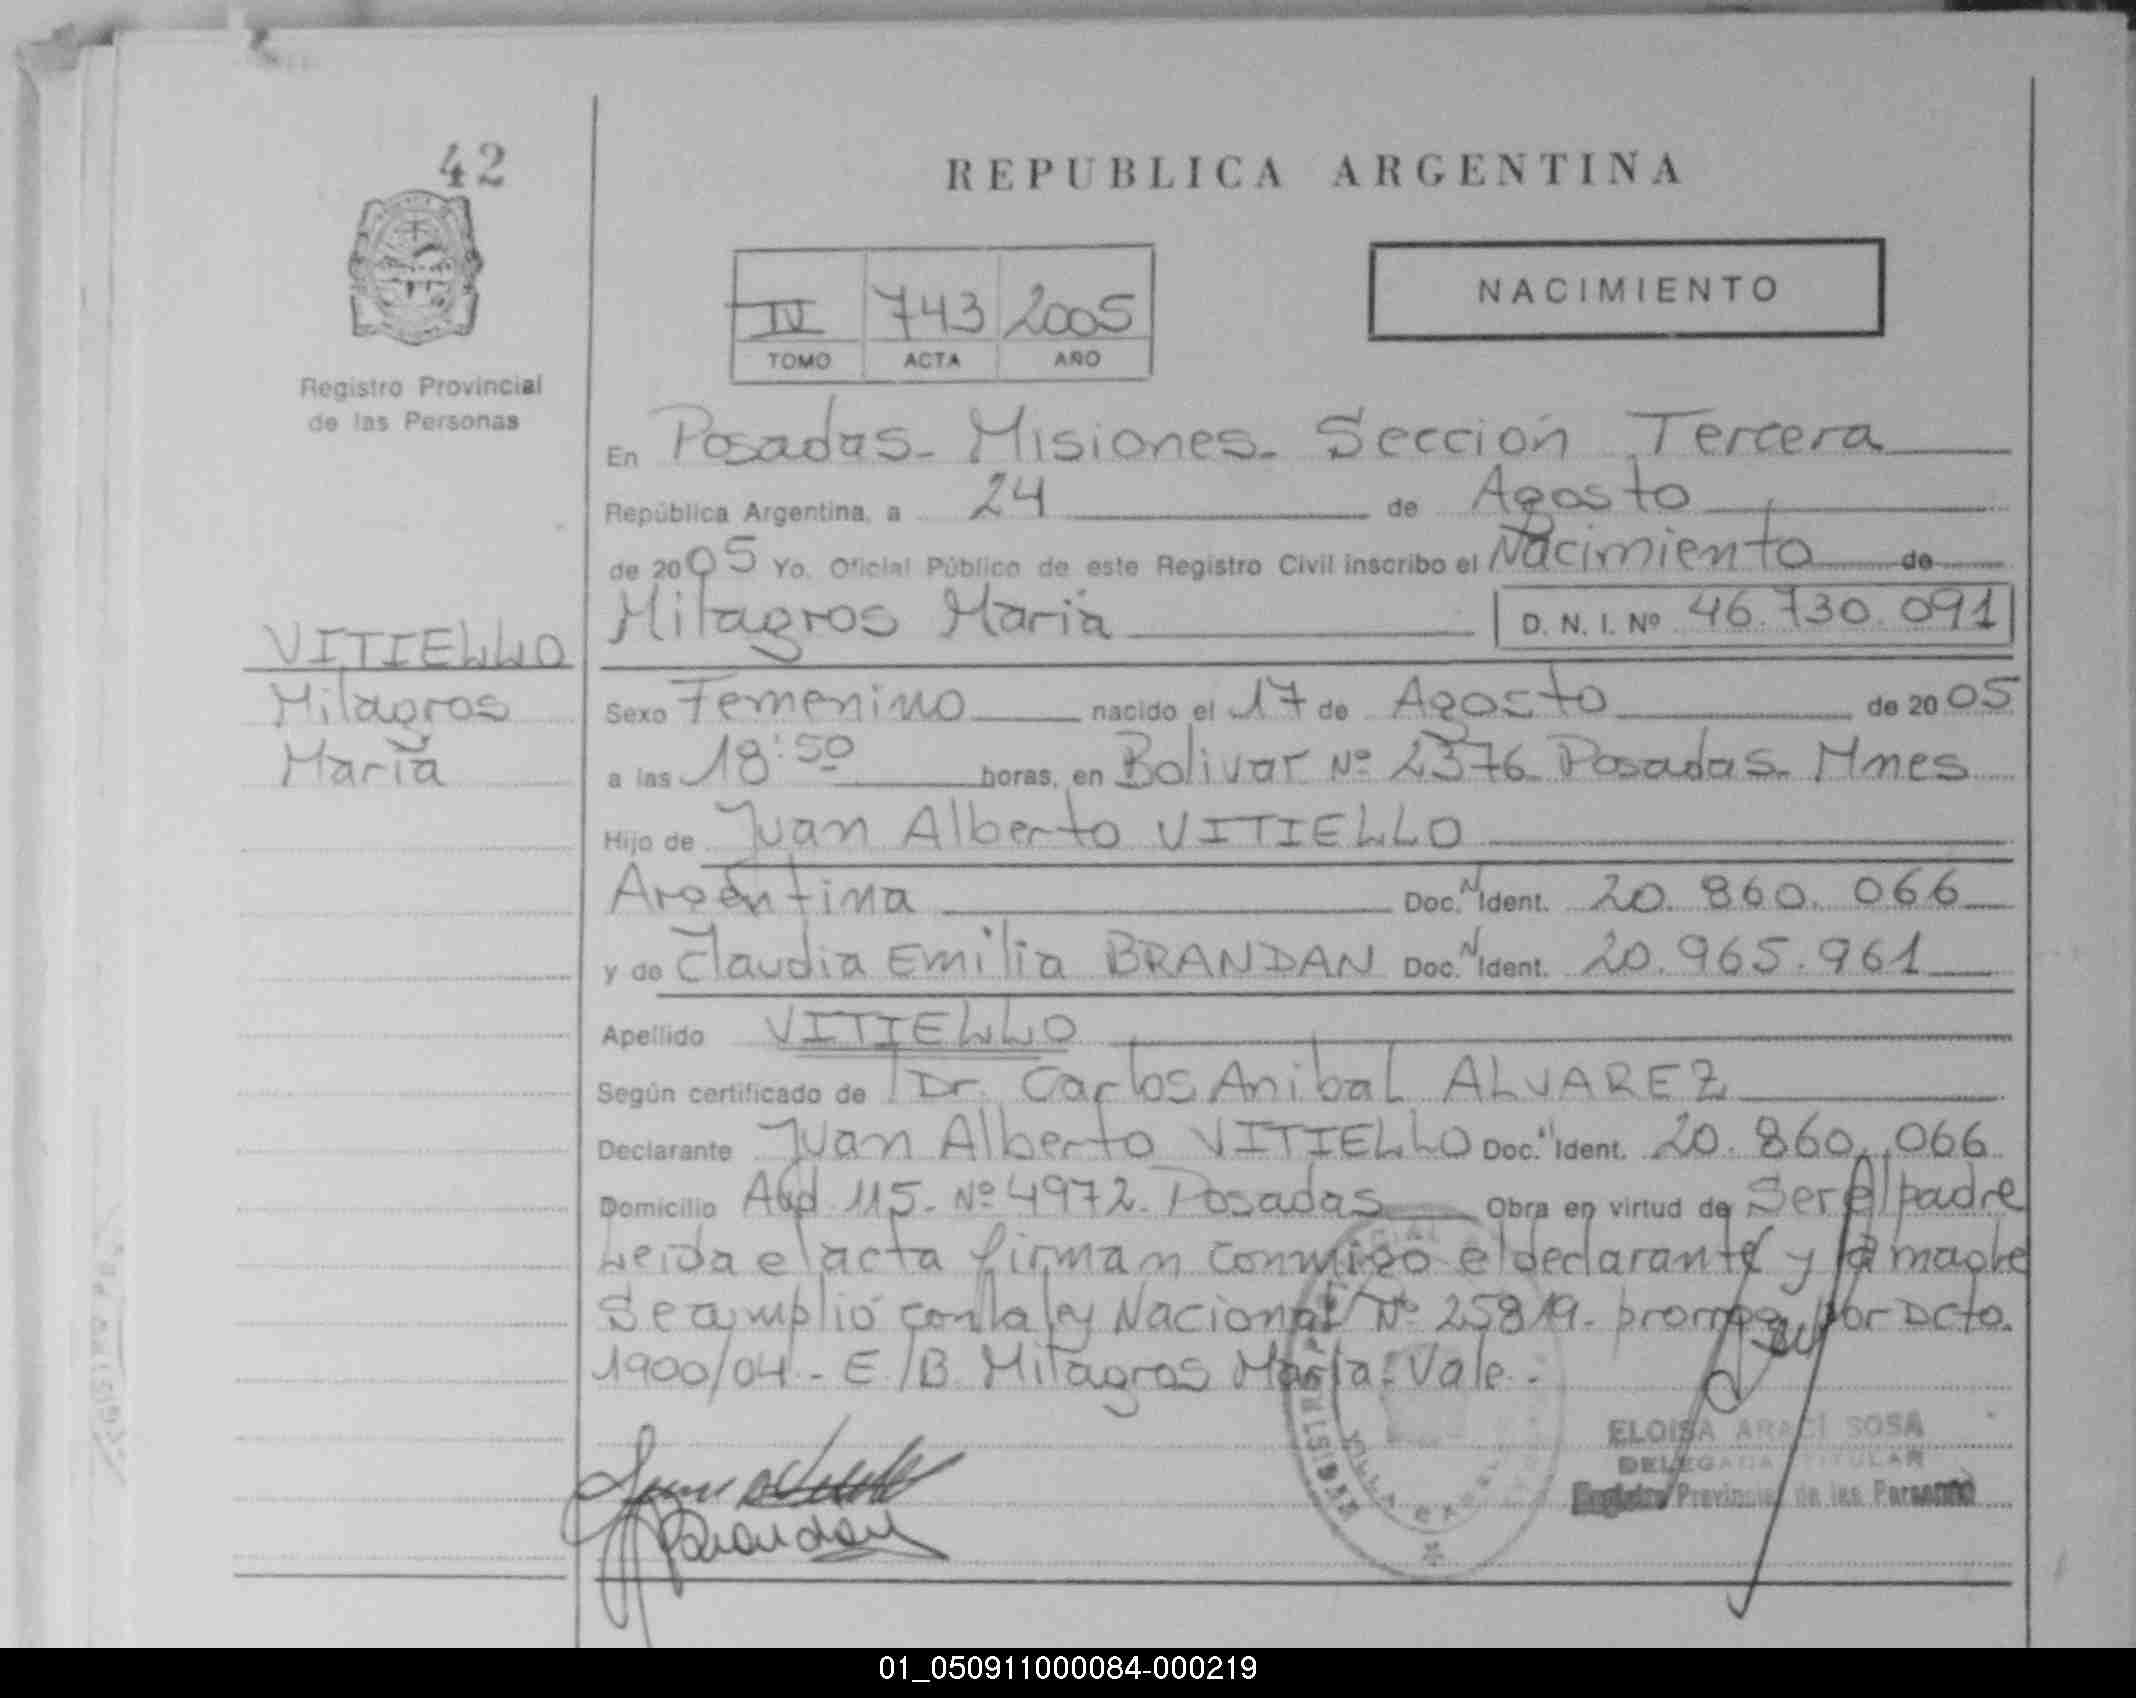 42
REPUBLICA ARGENTINA
NACIMIENTO
IV 743 2005
TOMO ACTA AÑO
Registro Provincial
de las Personas
En Posadas - Misiones - Sección Tercera
República Argentina, a 24 de Agosto
de 2005 Yo, Oficial Público de este Registro Civil inscribo el Nacimiento de
Milagros María D. N. I. Nº 46.730.091
VITIELLO
Milagros
María
Sexo Femenino nacido el 17 de Agosto de 2005
a las 18:50 horas, en Bolivar Nº 2376 Posadas - Mnes
Hijo de Juan Alberto VITIELLO
Argentina Doc. N Ident. 20.860.066
y de Claudia Emilia BRANDAN Doc. N Ident. 20.965.961
Apellido VITIELLO
Según certificado de Dr. Carlos Anibal ALVAREZ
Declarante Juan Alberto VITIELLO Doc. N Ident. 20.860.066
Domicilio 115 - Nº 4972 - Posadas Obra en virtud de Ser el padre
Leida el acta firman conmigo el declarante y la madre
Se cumplió con la ley Nacional Nº 25819 - por Dcto.
1900/04 - E/B Milagros María: Vale -
ELOISA ARACÍ SOSA
DELEGADA TITULAR
Registro Provincial de las Personas
Brandan
01_050911000084-000219